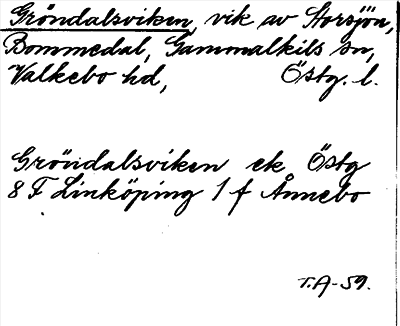 Gröndalsviken, vik av Storsjön,
Bommedal, Gammalkils sn,
Valkebo hd, Östg. l.
Gröndalsviken ek Östg
8 F Linköping 1 f Ånnebo
T.A-59.